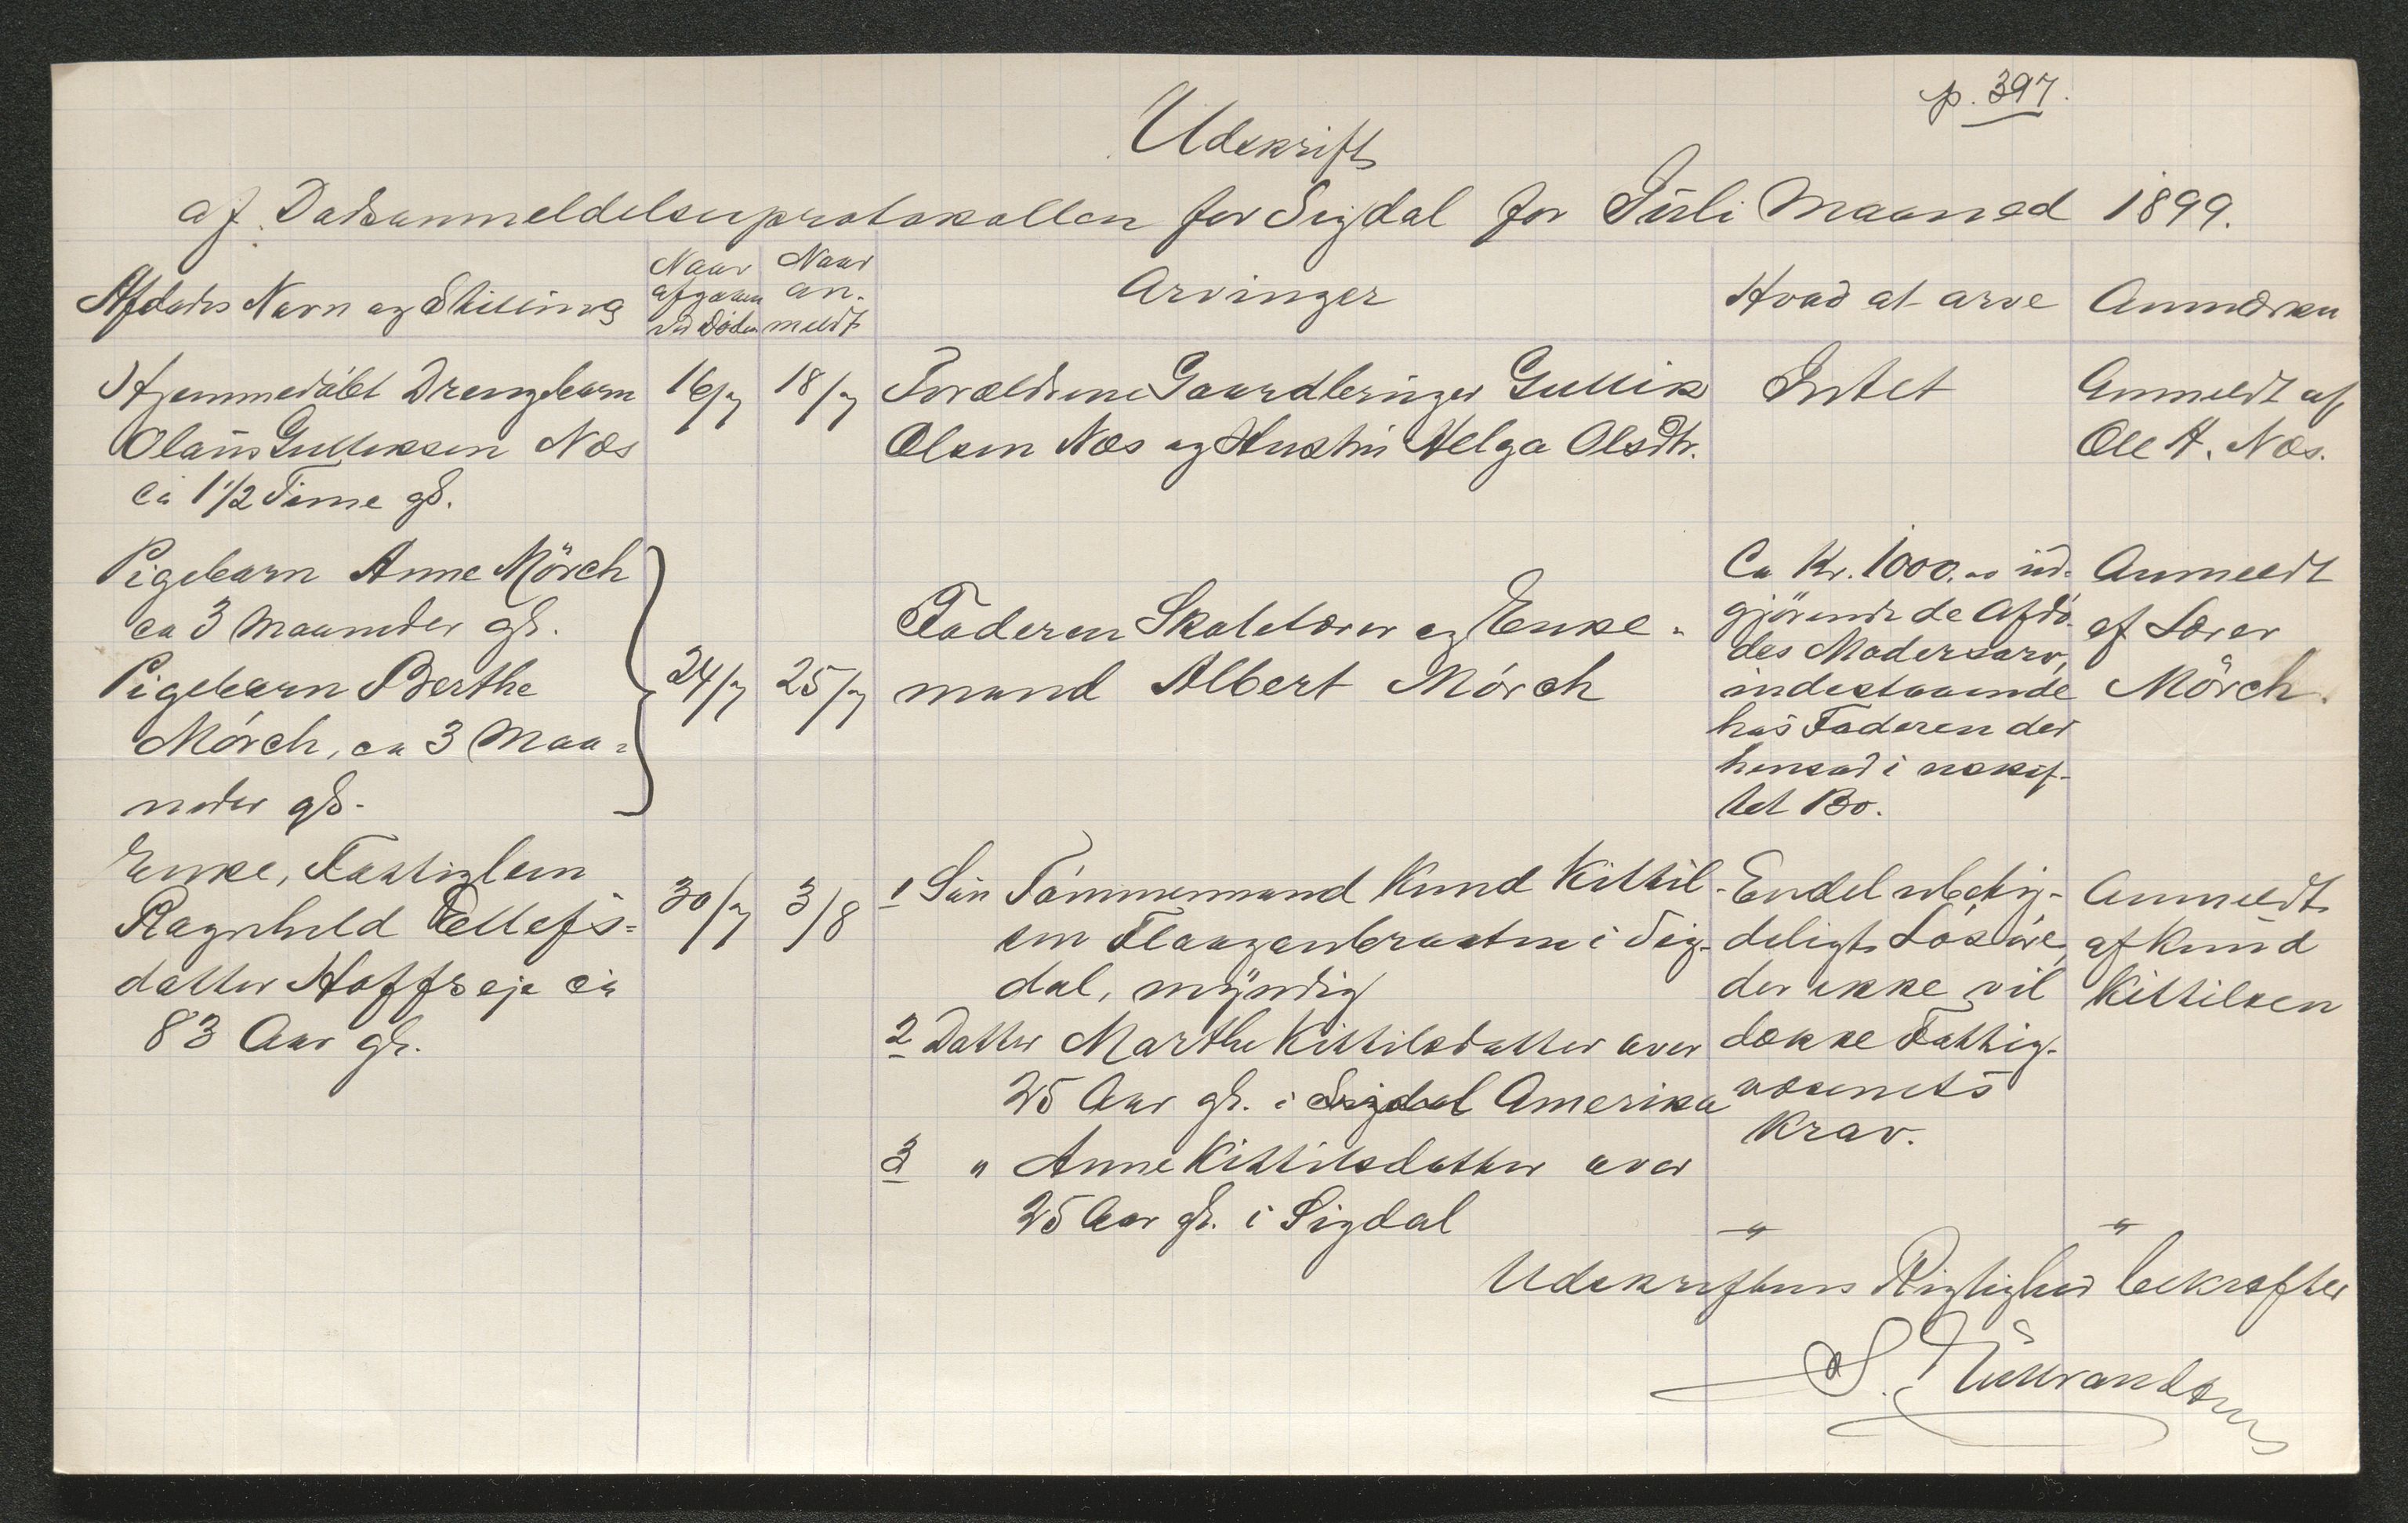 p. 397.
Udskrift
af Dødsanmeldelsesprotokollen for Sigdal for Juli Maaned 1899.
Afdødes Navn og Stilling
Naar
afgaaen
ved Døden
Naar
an-
meldt
Arvinger
Hvad at arve
Anmærkn
Hjemmedøbt Drengebarn
Olaus Gulliksen Næs
ca 1 1/2 Time gl.
16/7
18/7
Forældrene Gaardbruger Gullik
Olsen Næs og Hustru Helga Olsdtr.
Intet
Anmeldt af
Ole H. Næs.
Pigebarn Anne Mörch
ca 3 Maaneder gl.
Pigebarn Berthe
Mörch, ca 3 Maa=
neder gl.
24/7
25/7
Faderen Skolelærer og Enke-
mand Albert Mörch
Ca Kr. 1000.00 ud-
gjörende de Afdö-
des Mødrearv,
indestaaende
hos Faderen der
hensad i uskif-
tet Bo.
Anmeldt
af Lærer
Mörch.
Enke, Fattiglem
Ragnhild Ellefs=
datter Hoffseje ca
83 Aar gl.
30/7
3/8
1 Sön Tömmermand Knud Kittil-
sen Flaagenbraaten i Sig-
dal, myndig
2 Datter Marthe Kittilsdatter over
25 Aar gl. i Sigdal Amerika
3 " Anne Kittilsdatter over
25 Aar gl. i Sigdal
Endel ubety-
deligt Lösöre,
der ikke vil
dække Fattig-
væsenets
Krav.
Anmeldt
af Knud
Kittilsen
-"- -"-
Udskriftens Rigtighed bekræfter